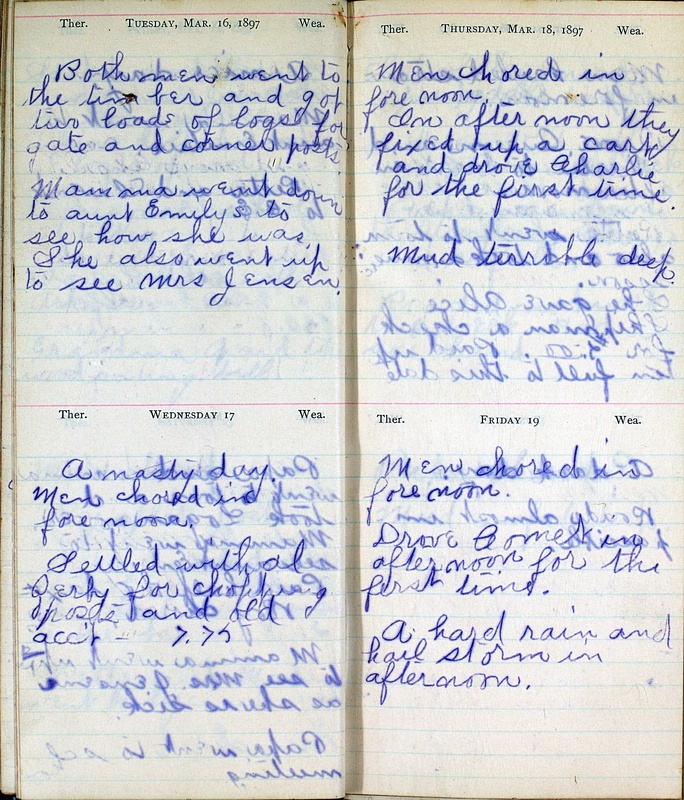 Ther. TUESDAY, MAR. 16, 1897 Wea.
Both men went to
the timber and got
two loads of logs for
gate and corner posts.
Mamma went down
to aunt Emily's to
see how she was.
She also went up
to see Mrs Jensen.
Ther. WEDNESDAY 17 Wea.
A nasty day.
Men chored in
fore noon.
Settled with al
Gerby for chopping
posts and old
acc't - 7.75
Ther. THURSDAY, MAR. 18, 1897 Wea.
Men chored in
fore noon.
In after noon they
fixed up a cart
and drove Charlie
for the first time.
Mud terrible deep.
Ther. FRIDAY 19 Wea.
Men chored in
fore noon.
Drove Comet in
afternoon for the
first time.
A hard rain and
hail storm in
afternoon.